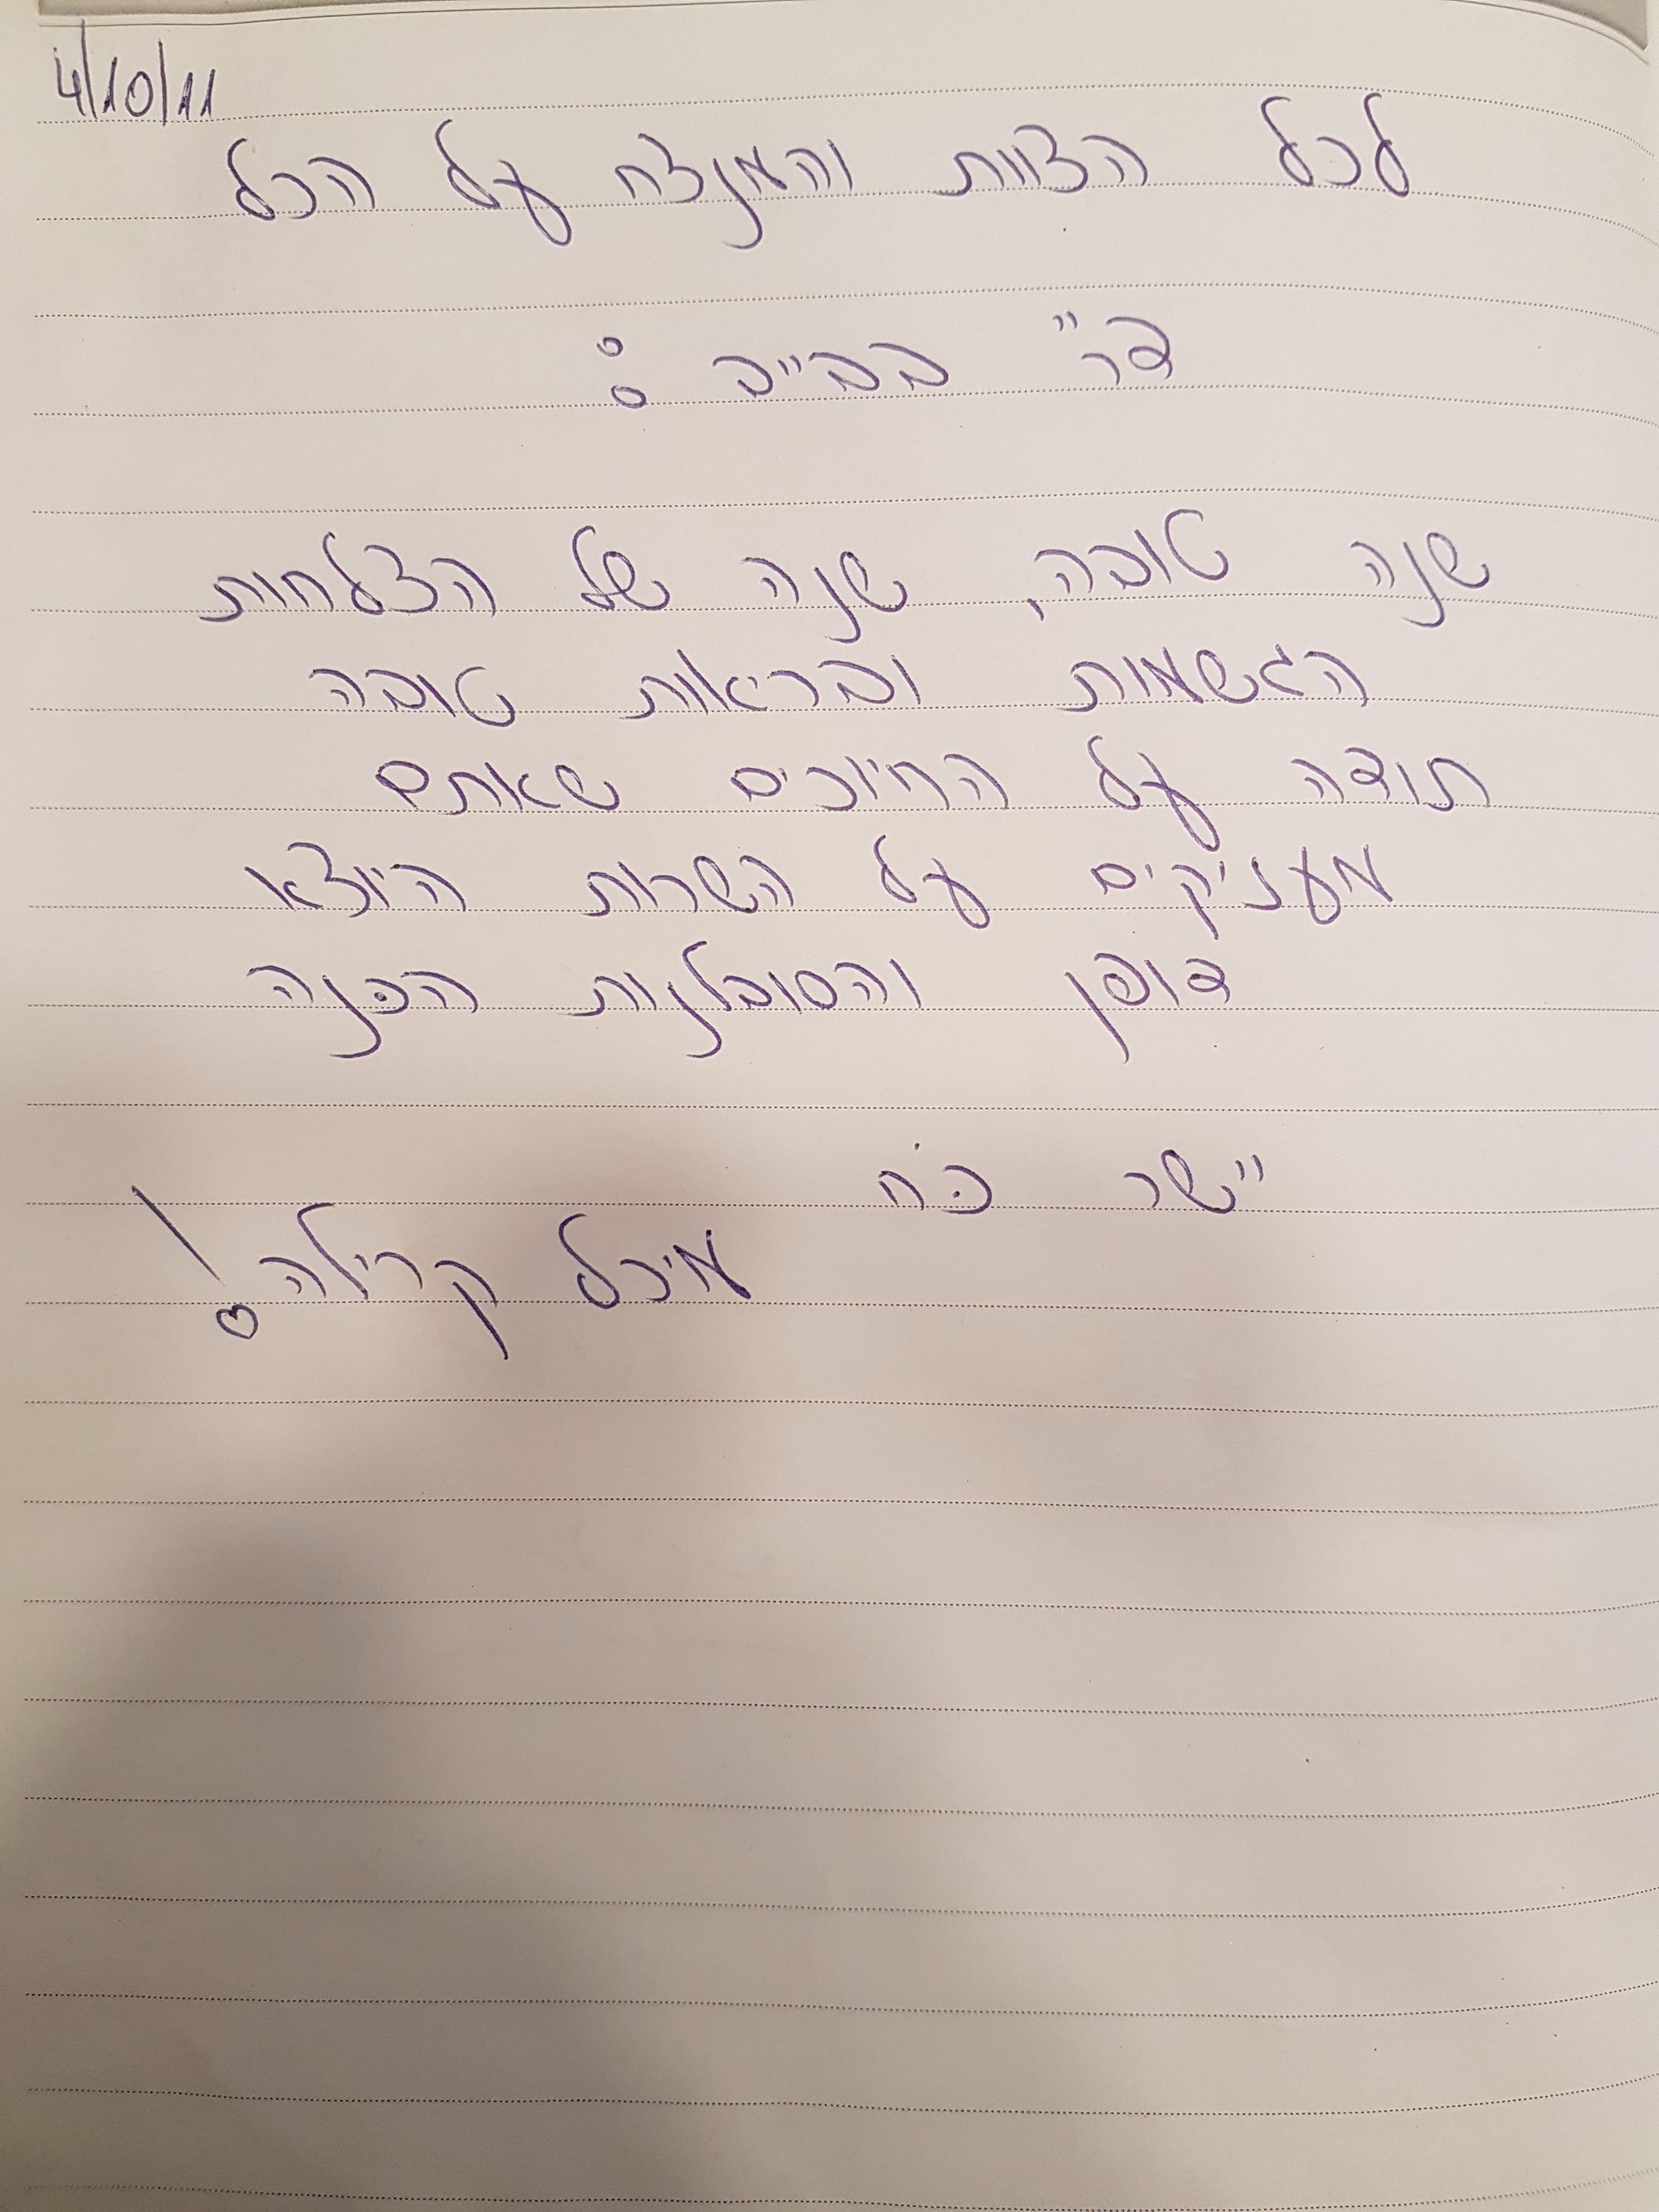 4/10/11
לכל הצוות והמנצח על הכל
דר" בב"ב :
שנה טובה, שנה של הצלחות
הגשמות ובריאות טובה
תודה על החיוכים שאתם
מעניקים על השרות היוצא
דופן והסובלנות הכנה
יישר כח
מיכל קרילה!